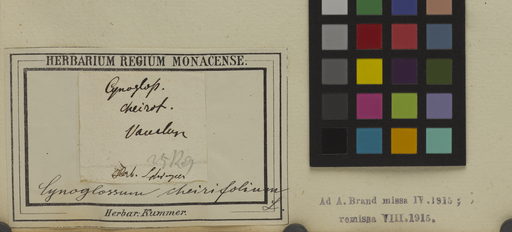 HERBARIUM REGIUM MONACENSE.
Cynoglos.
cheirif.
Vaucluse
Herb.
Cynoglossum cheirifolium
L.
Herbar. Kummer.
Ad A. Brand missa IV.1915;
remissa VIII.1915.